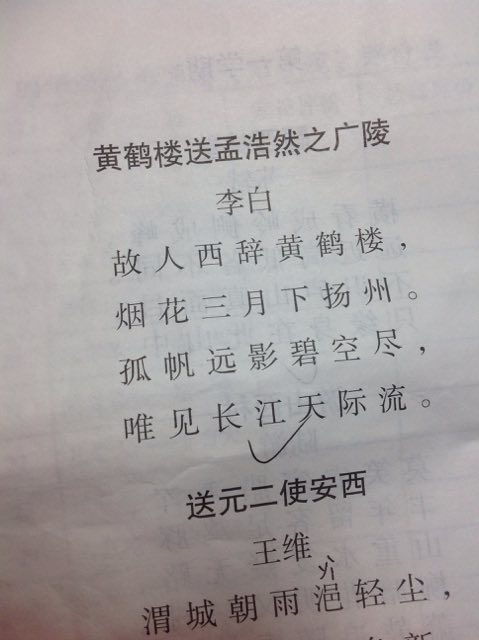 黄鹤楼送孟浩然之广陵
李白
故人西辞黄鹤楼，
烟花三月下扬州。
孤帆远影碧空尽，
唯见长江天际流。
送元二使安西
王维
渭城朝雨浥轻尘，